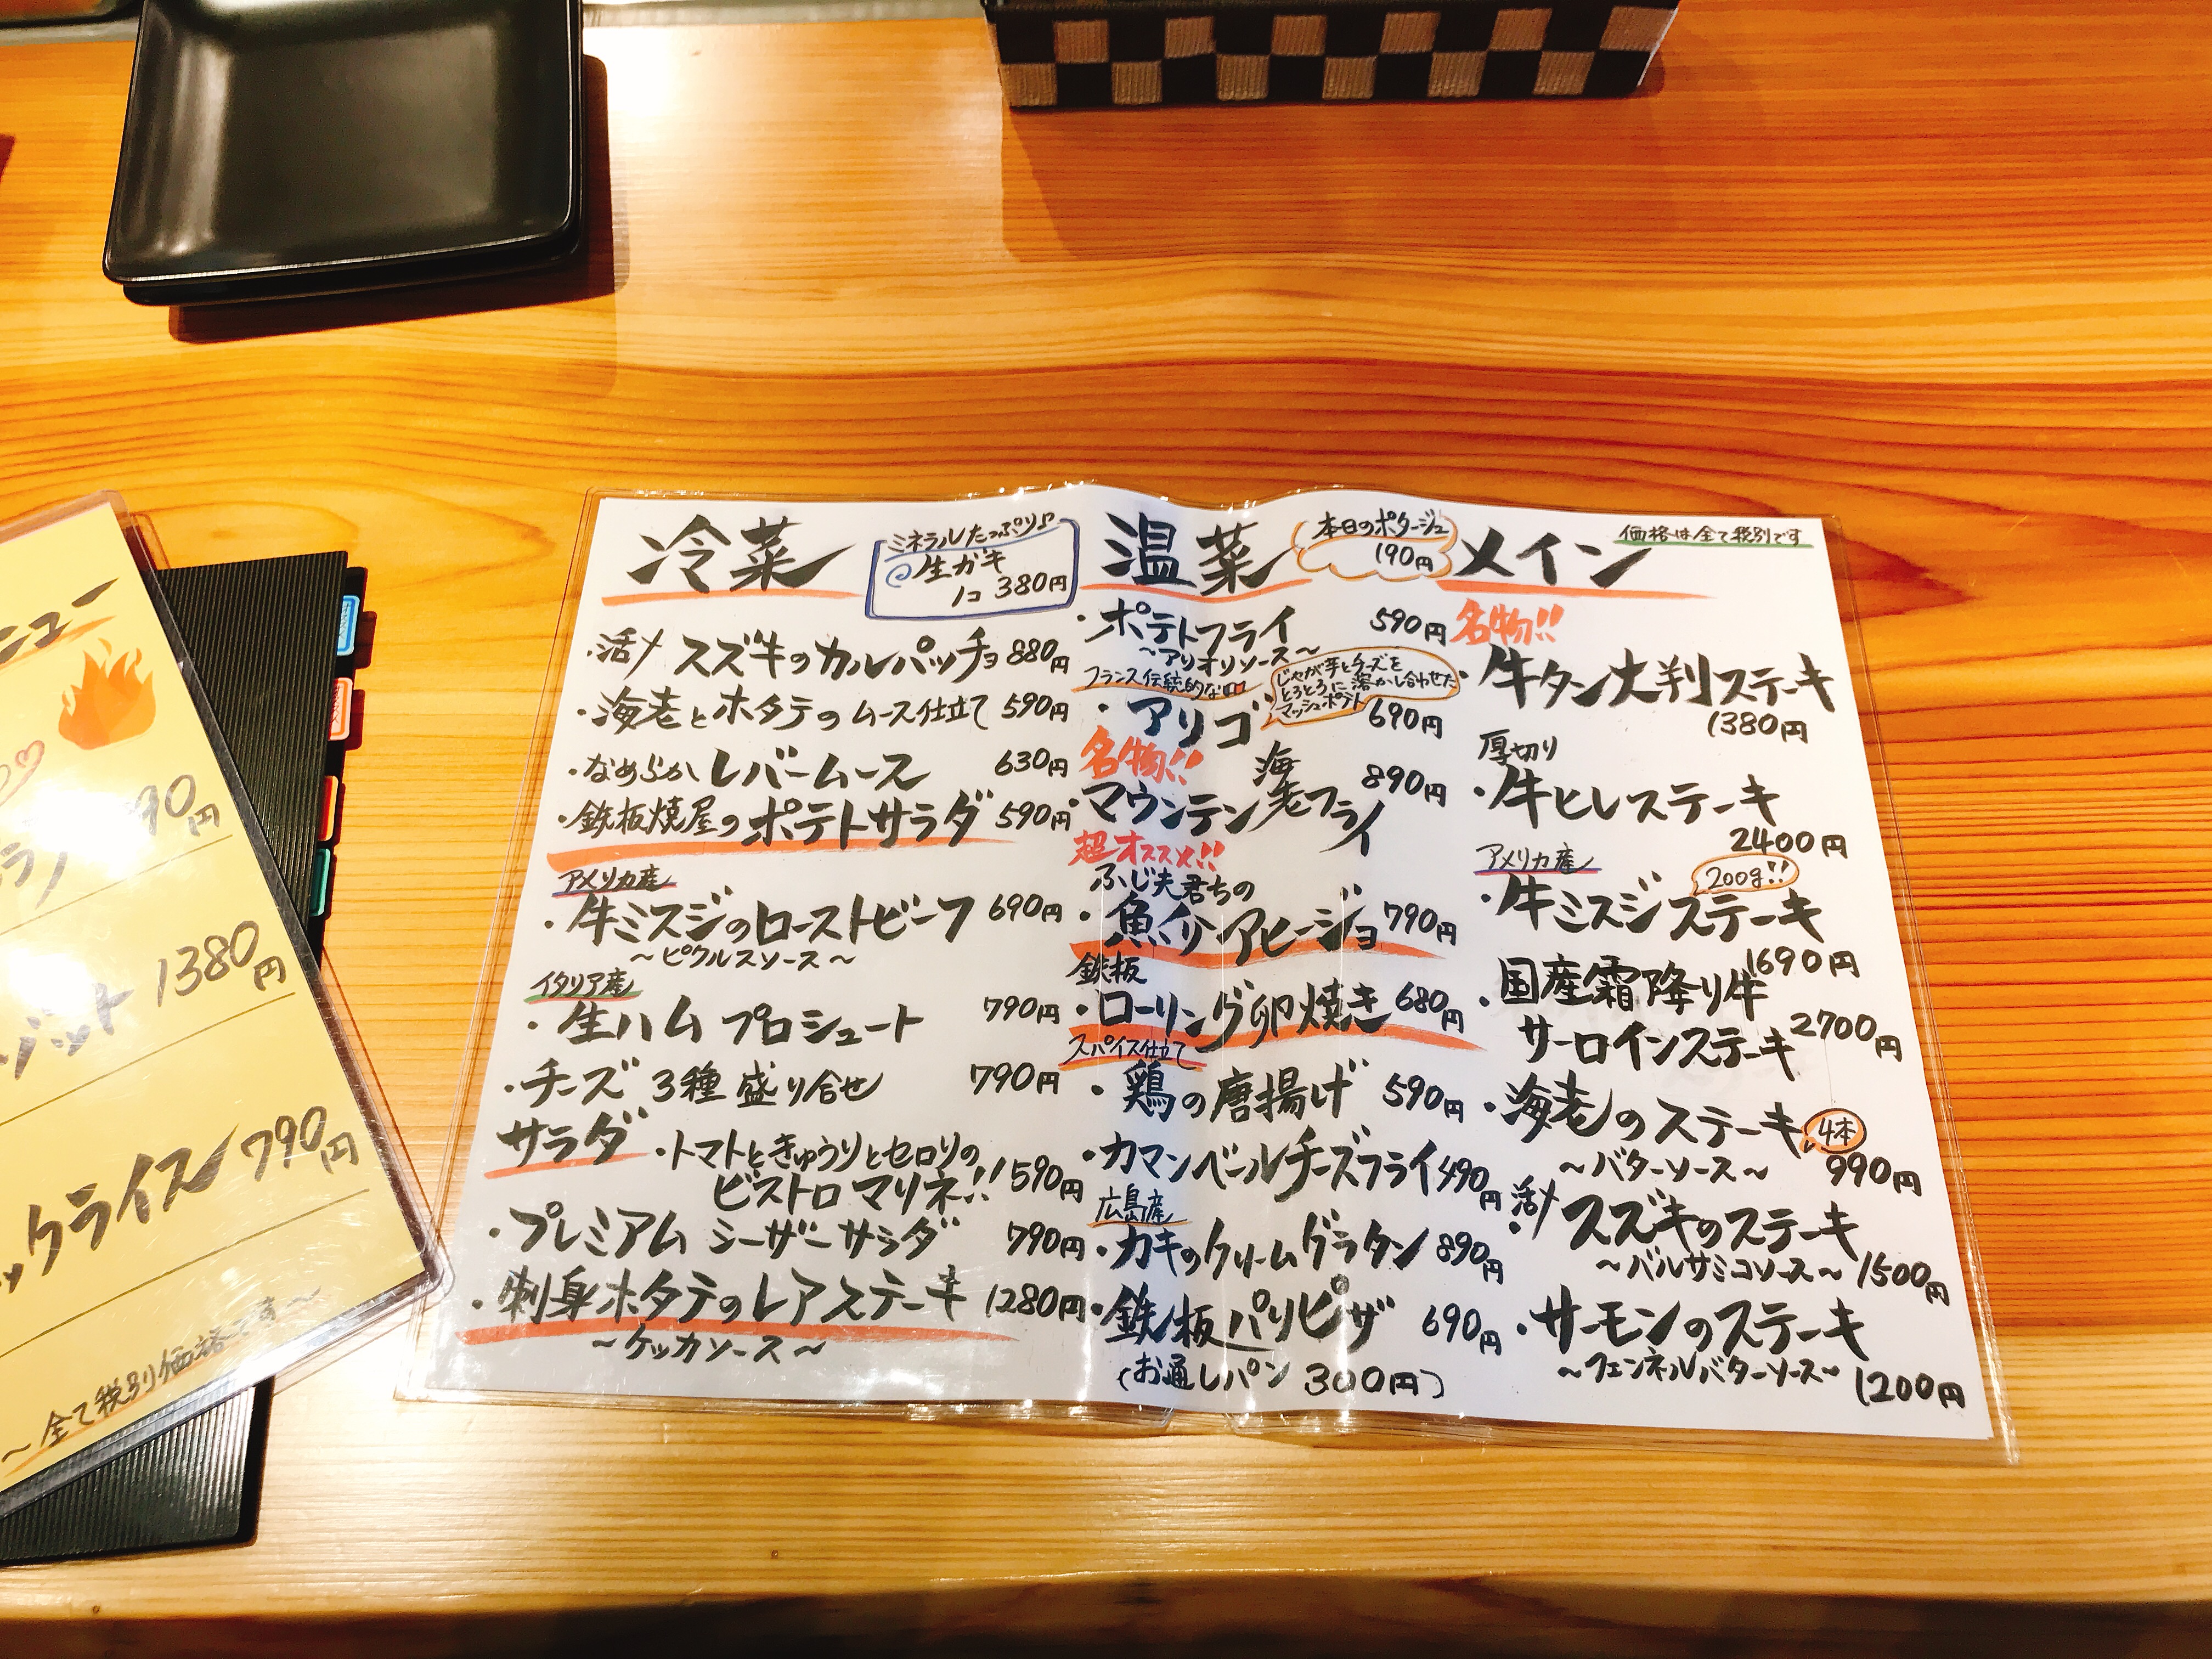 冷菜
ミネラルたっぷり♪
生ガキ
1コ 380円
・活〆 スズキのカルパッチョ 880円
・海老とホタテのムース仕立て 590円
・なめらかレバームース 630円
・鉄板焼屋のポテトサラダ 590円
アメリカ産
・牛ミスジのローストビーフ 690円
～ピクルスソース～
イタリア産
・生ハム プロシュート 790円
・チーズ 3種盛り合せ 790円
サラダ
・トマトときゅうりとセロリの
ビストロマリネ!! 590円
・プレミアム シーザーサラダ 790円
・刺身ホタテのレアステーキ 1280円
～ケッカソース～
温菜
本日のポタージュ
190円
・ポテトフライ 590円
～アリオリソース～
フランス伝統的な
・アリゴ 690円
じゃが芋とチーズを
とろとろに溶かし合わせた
マッシュポテト
名物!!
・マウンテン海老フライ 890円
超オススメ!!
ふじ夫君ちの
・魚介アヒージョ 790円
鉄板
・ローリング卵焼き 680円
スパイス仕立て
・鶏の唐揚げ 590円
・カマンベールチーズフライ 490円
広島産
・カキのクリームグラタン 890円
・鉄板パリピザ 690円
(お通しパン 300円)
メイン
価格は全て税別です
名物!!
・牛タン大判ステーキ
1380円
厚切り
・牛ヒレステーキ
2400円
アメリカ産
200g!!
・牛ミスジステーキ
1690円
・国産霜降り牛
サーロインステーキ 2700円
・海老のステーキ 4本
～バターソース～ 990円
・活〆 スズキのステーキ
～バルサミコソース～ 1500円
・サーモンのステーキ
～フェンネルバターソース～ 1200円
ニュー
90円
1380円
ックライス 790円
～全て税別価格です～